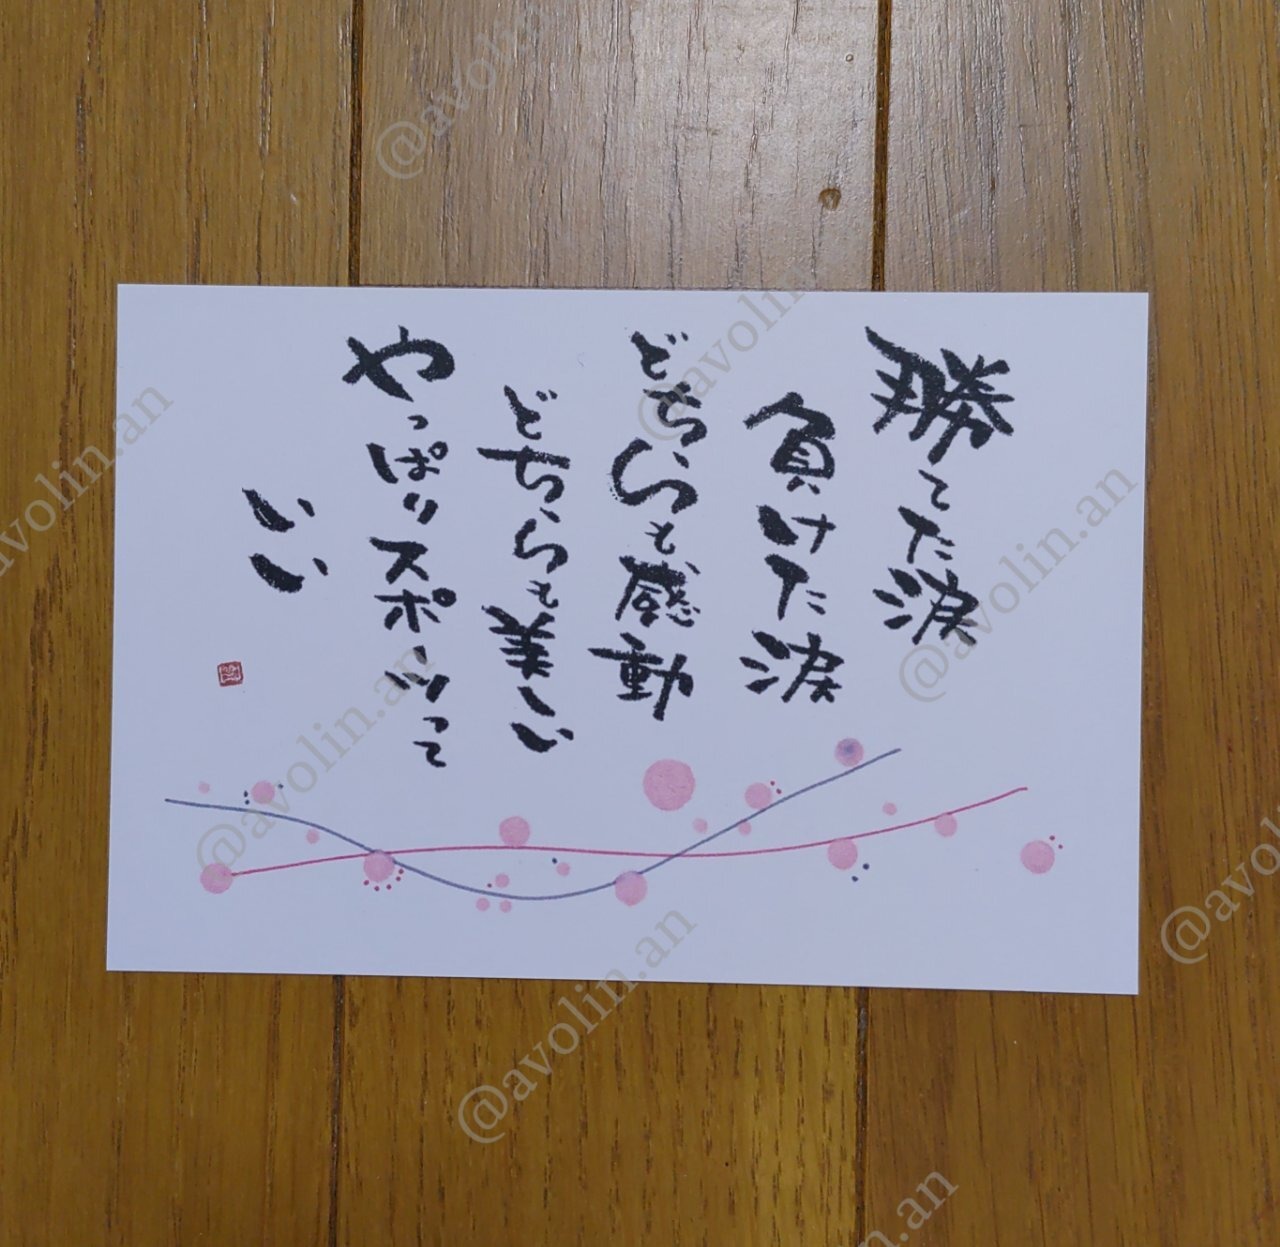 勝てた涙
負けた涙
どちらも感動
どちらも美しい
やっぱりスポーツって
いい
@avolin.an
@avolin.an
@avolin.an
@avolin.an
@avolin.an